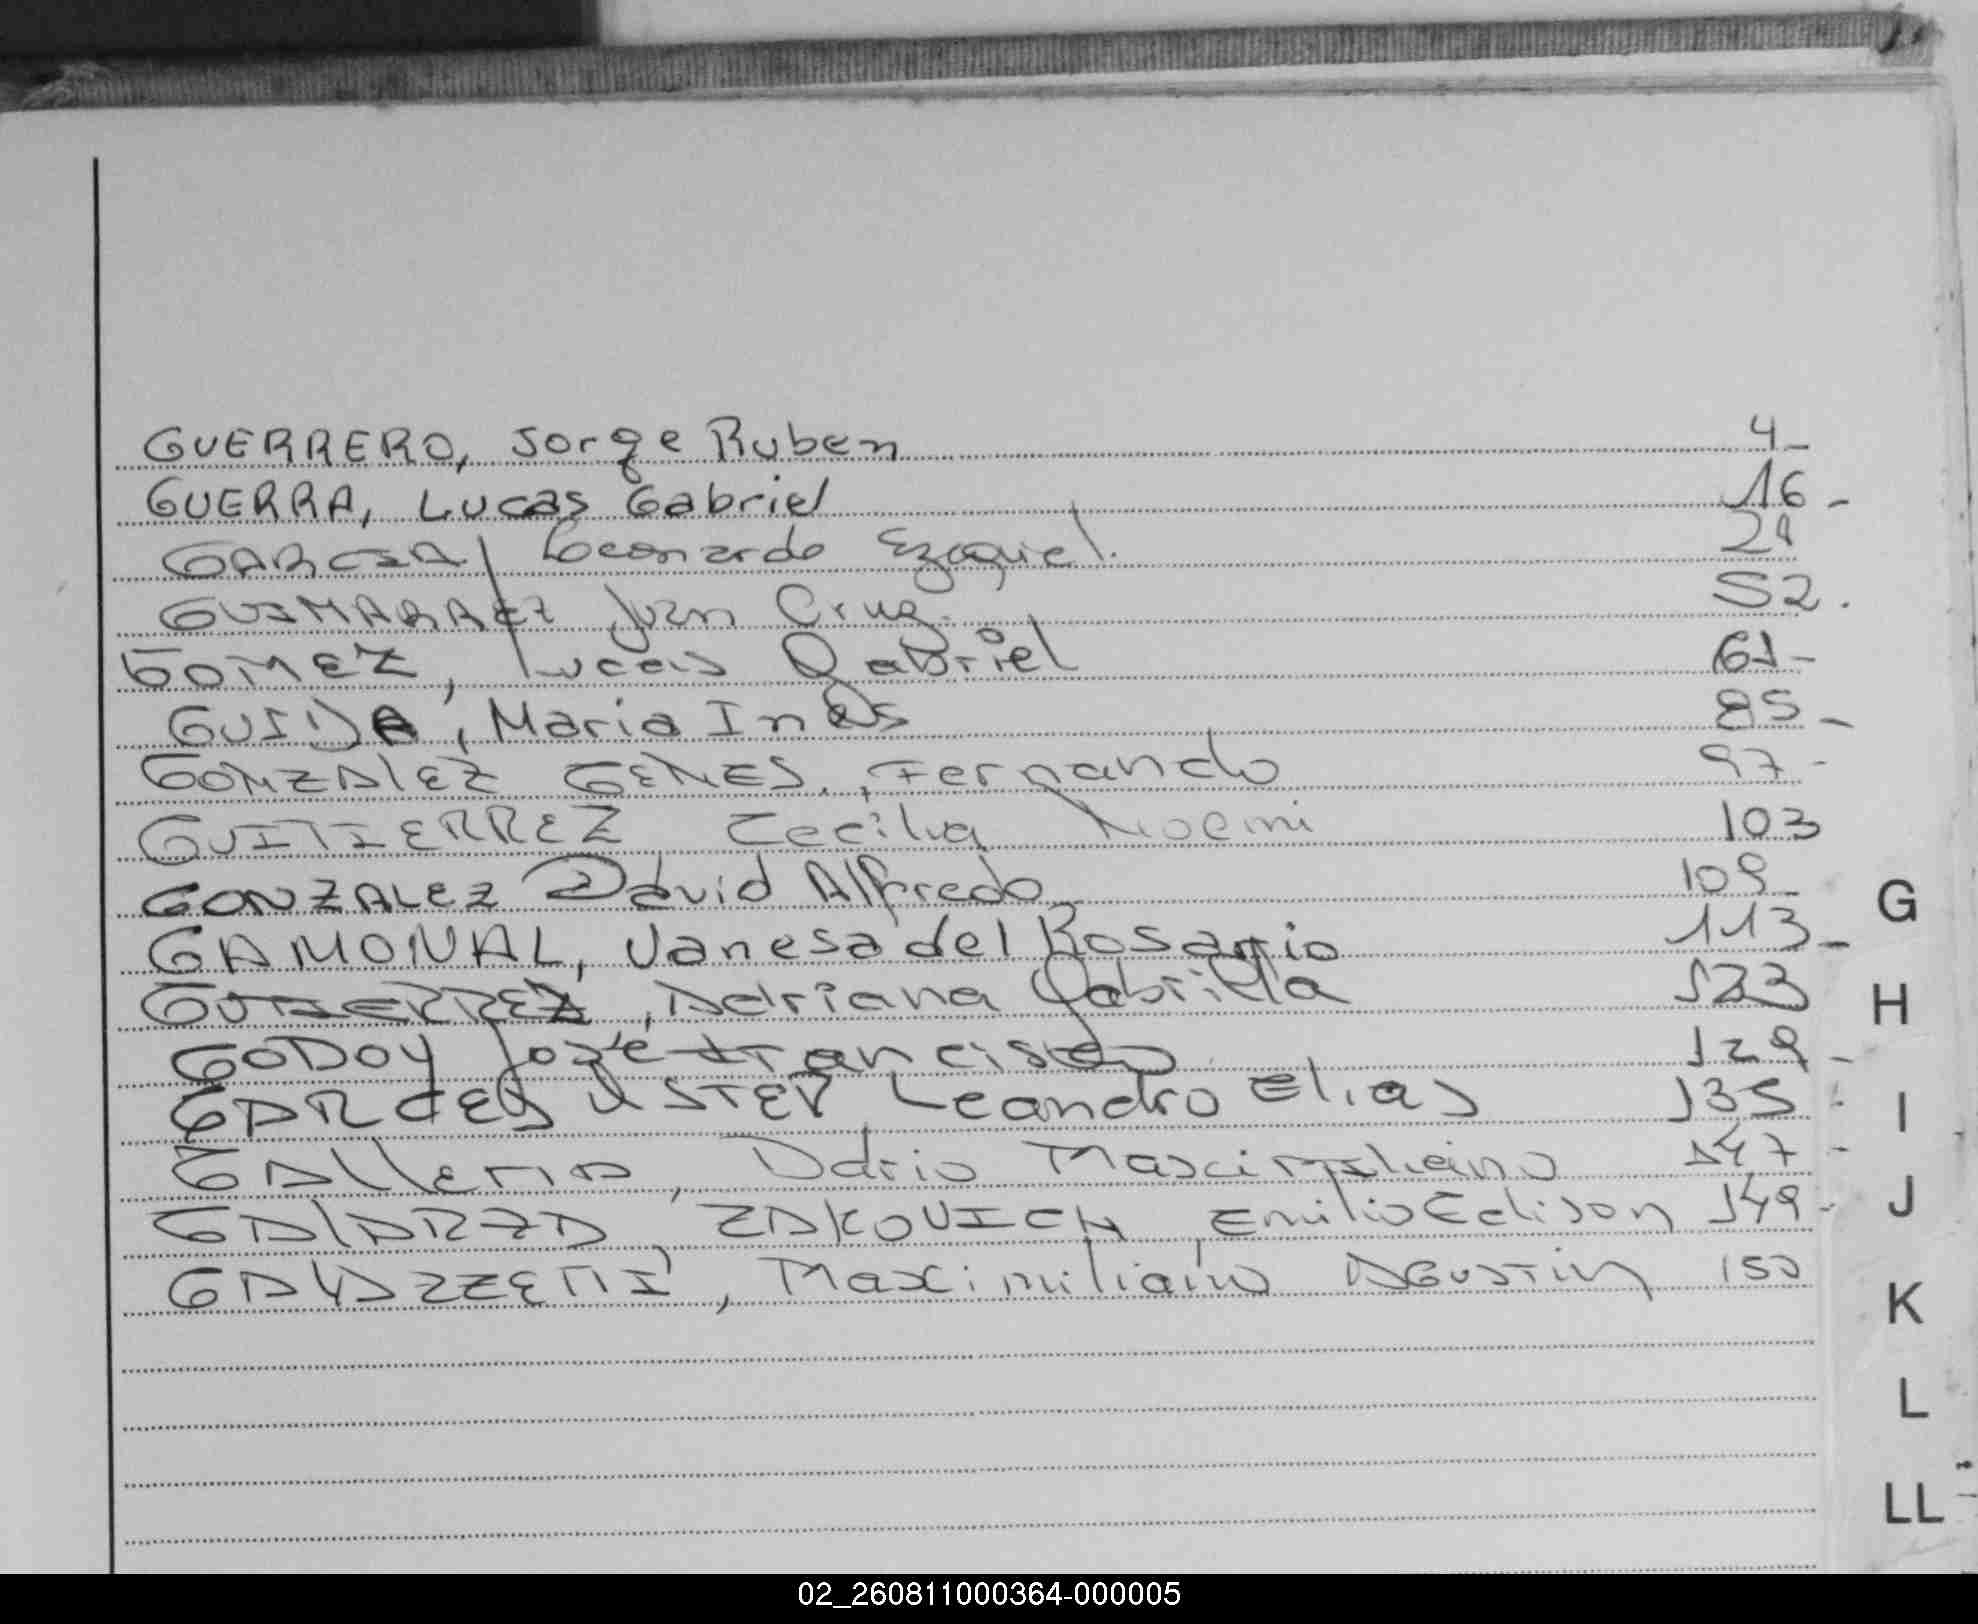 GUERRERO, Jorge Ruben 4-
GUERRA, Lucas Gabriel 16-
GARCIA, Leonardo Ezequiel. 29
GUIMARAEZ Juan Cruz. 52.
GOMEZ, Lucas Gabriel 61-
GUIDA, Maria Ines 85-
GONZALEZ GENES, Fernando 97-
GUITIERREZ Cecilia Noemi 103
GONZALEZ David Alfredo 109-
GAMONAL, Vanesa del Rosario 113-
GUTIERREZ, Adriana Gabriella 123
GODOY José Francisco 129-
GARCES Leandro Elias 135-
GAllETTA, Dario Maximiliano 147-
GALARZA, ZAKOVICH, Emilio Edison 149-
Maximiliano AGUSTIN 150
G
H
I
J
K
L
LL
02_260811000364-000005